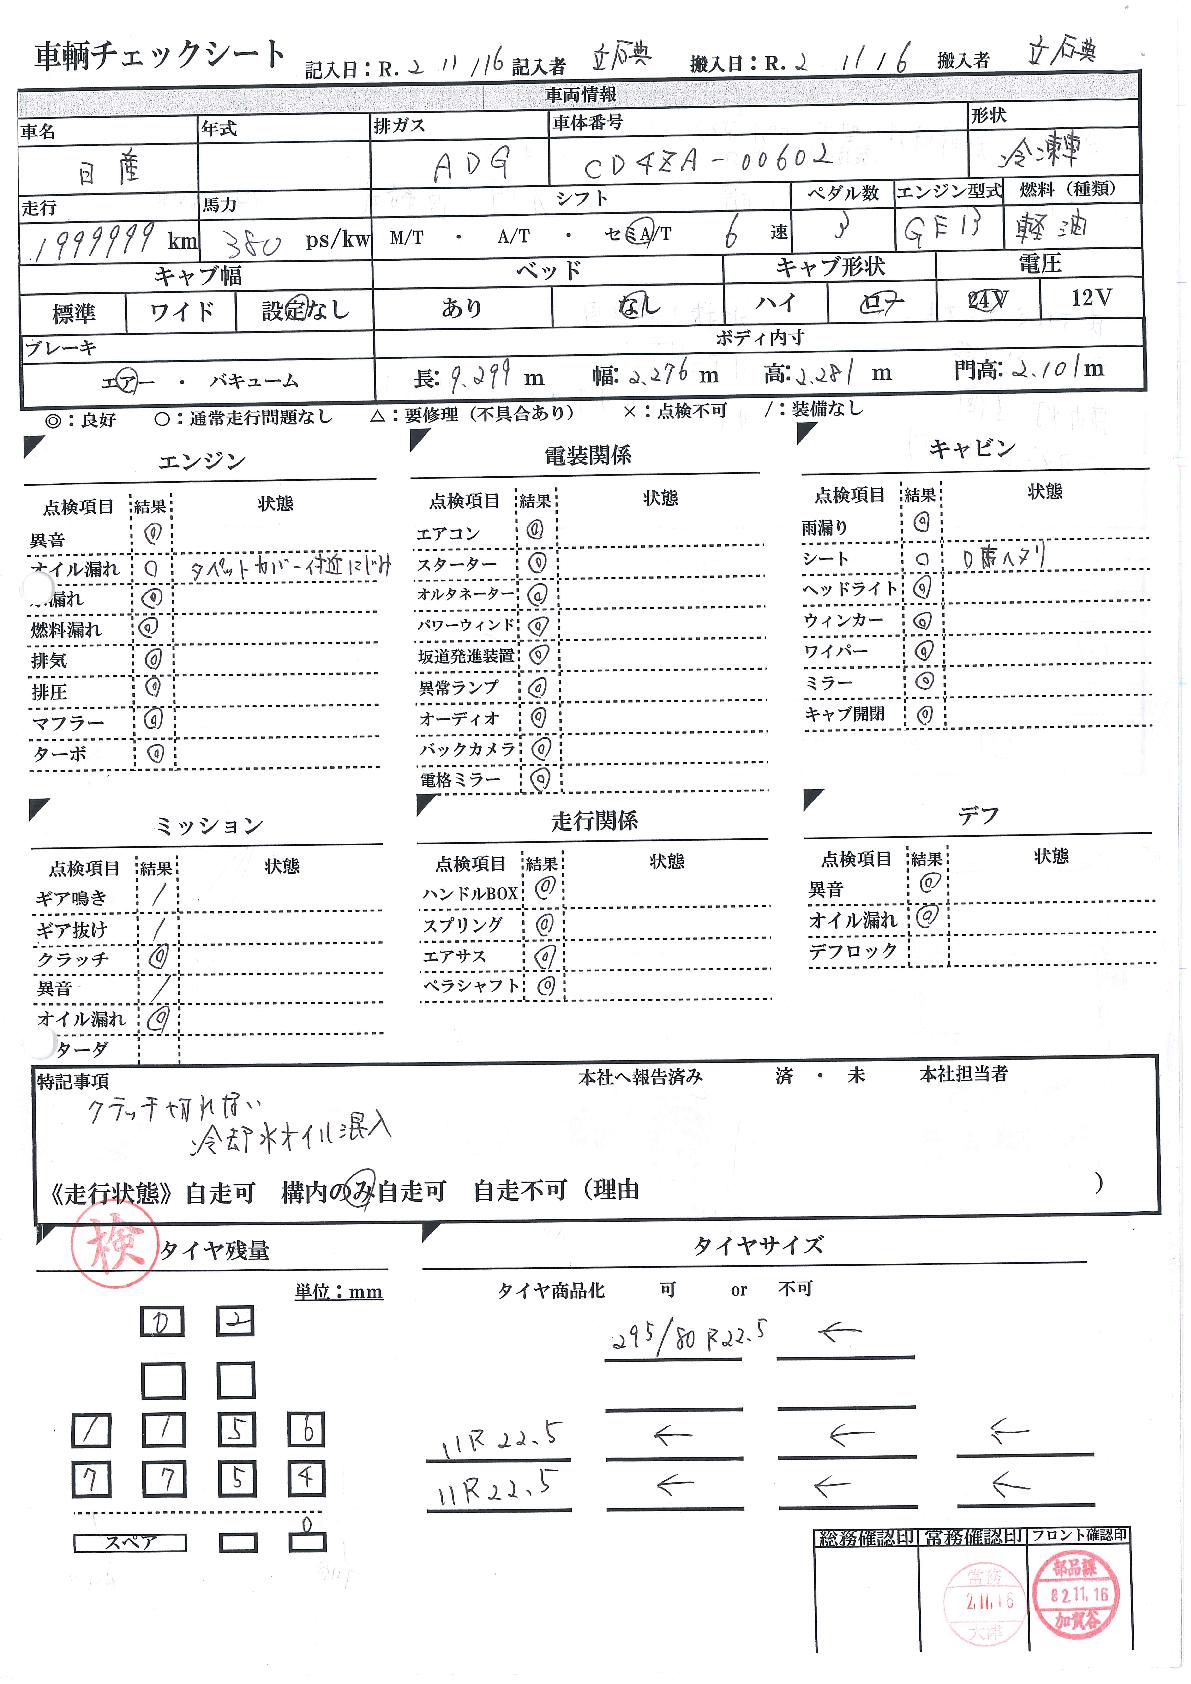 車輌チェックシート 記入日：R.2 11/16 記入者 立石典 搬入日：R.2 11/16 搬入者 立石典
車両情報
車名 年式 排ガス 車体番号 形状
日産 ADG CD4ZA-00602 冷凍車
走行 馬力 シフト ペダル数 エンジン型式 燃料（種類）
1999999 km 380 ps/kw M/T ・ A/T ・ セミA/T 6 速 3 GE13 軽油
キャブ幅 ベッド キャブ形状 電圧
標準 ワイド 設定なし あり なし ハイ ロー 24V 12V
ブレーキ ボディ内寸
エアー ・ バキューム 長：9.299 m 幅：2.276 m 高：2.281 m 門高：2.101 m
◎：良好 ○：通常走行問題なし △：要修理（不具合あり） ×：点検不可 /：装備なし
エンジン
点検項目 結果 状態
異音 ◎
オイル漏れ ○ タペットカバー付近にじみ
漏れ ◎
燃料漏れ ◎
排気 ◎
排圧 ◎
マフラー ◎
ターボ ◎
電装関係
点検項目 結果 状態
エアコン ◎
スターター ◎
オルタネーター ◎
パワーウィンド ◎
坂道発進装置 ◎
異常ランプ ◎
オーディオ ◎
バックカメラ ◎
電格ミラー ◎
キャビン
点検項目 結果 状態
雨漏り ◎
シート ○ D席ヘタリ
ヘッドライト ◎
ウィンカー ◎
ワイパー ◎
ミラー ◎
キャブ開閉 ◎
ミッション
点検項目 結果 状態
ギア鳴き /
ギア抜け /
クラッチ ◎
異音 /
オイル漏れ ◎
ターダ
走行関係
点検項目 結果 状態
ハンドルBOX ◎
スプリング ◎
エアサス ◎
ペラシャフト ◎
デフ
点検項目 結果 状態
異音 ◎
オイル漏れ ◎
デフロック
特記事項 本社へ報告済み 済 ・ 未 本社担当者
クラッチ切れない
冷却水オイル混入
《走行状態》自走可 構内のみ自走可 自走不可（理由 ）
検
タイヤ残量
単位：mm
0 2
1 1 5 6
7 7 5 4
0
スペア
タイヤサイズ
タイヤ商品化 可 or 不可
295/80R22.5 ←
11R22.5 ← ← ←
11R22.5 ← ← ←
総務確認印 常務確認印 フロント確認印
常務
2.11.16
大津
部品課
82.11.16
加賀谷